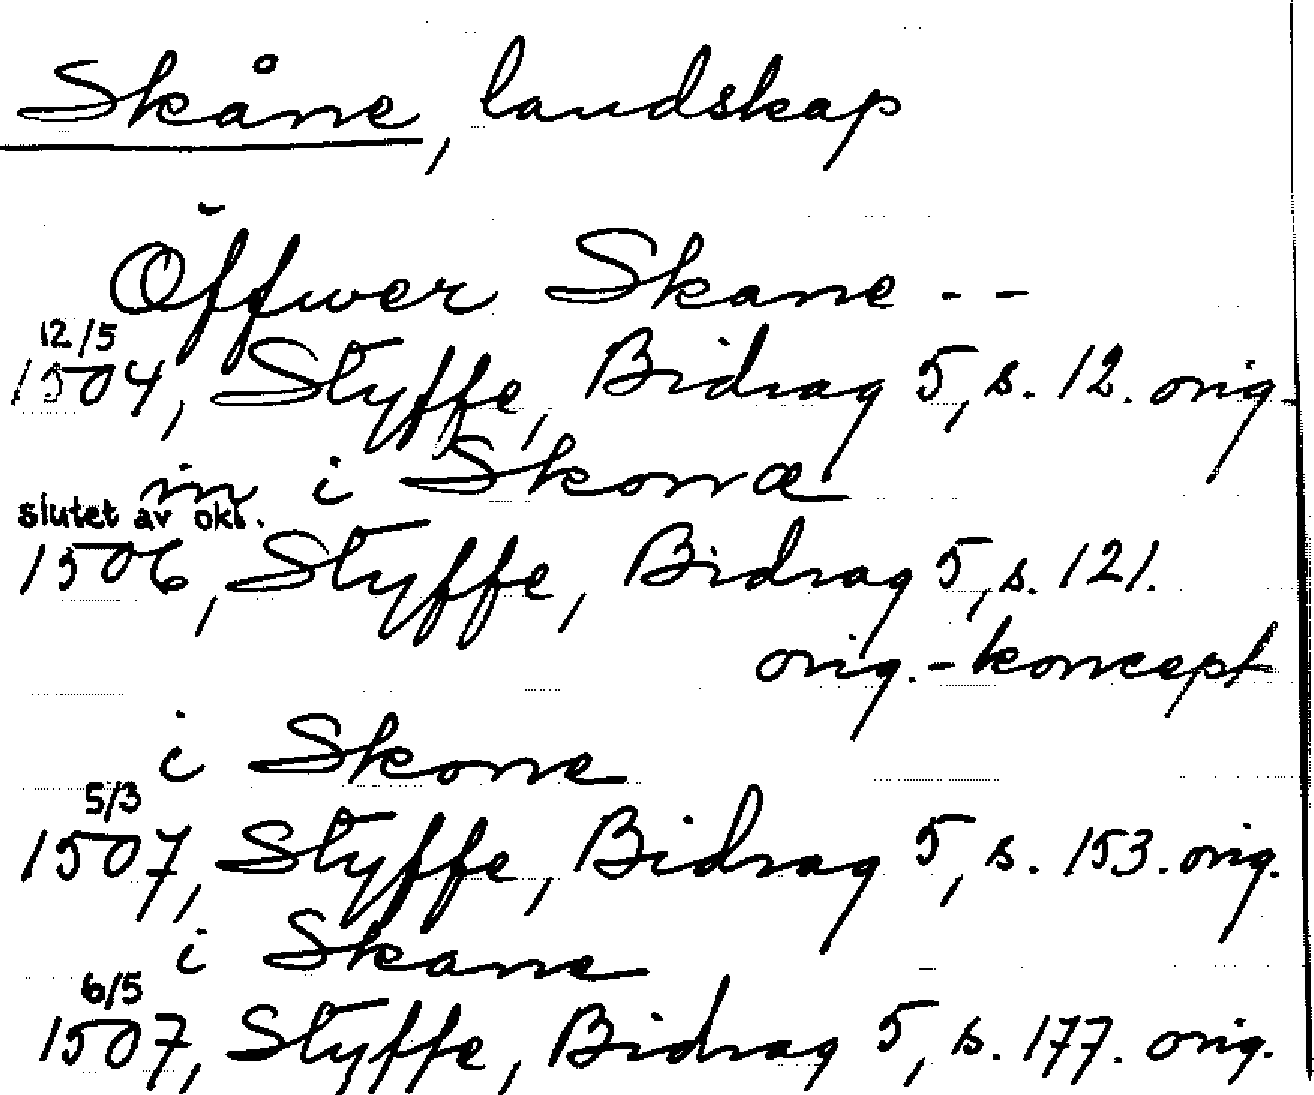 Skåne, landskap
Öffwer Skane - -
12/5
1504, Styffe, Bidrag 5, s. 12. orig.
in i Skonæ
slutet av okt.
1506, Styffe, Bidrag 5, s. 121.
orig.-koncept
i Skone
5/3
1507, Styffe, Bidrag 5, s. 153. orig.
i Skane
6/5
1507, Styffe, Bidrag 5, s. 177. orig.